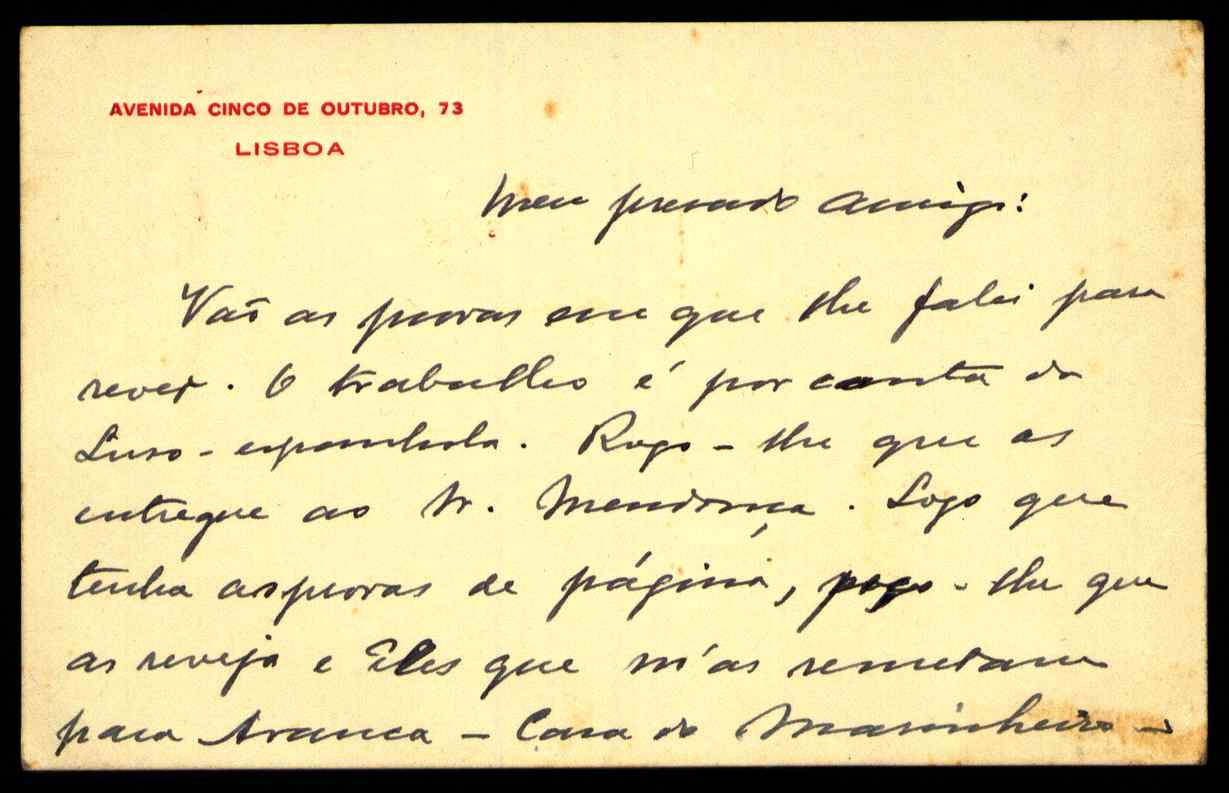 AVENIDA CINCO DE OUTUBRO, 73
LISBOA
Meu presado amigo:
Vão as provas em que lhe falei para
rever. O trabalho é por conta da
Luso-espanhola. Rogo-lhe que as
entregue ao Sr. Mendonça. Logo que
tenha as provas de página, peço-lhe que
as reveja e Eles que m'as remetam
para Arauca - Casa do Marinheiro -